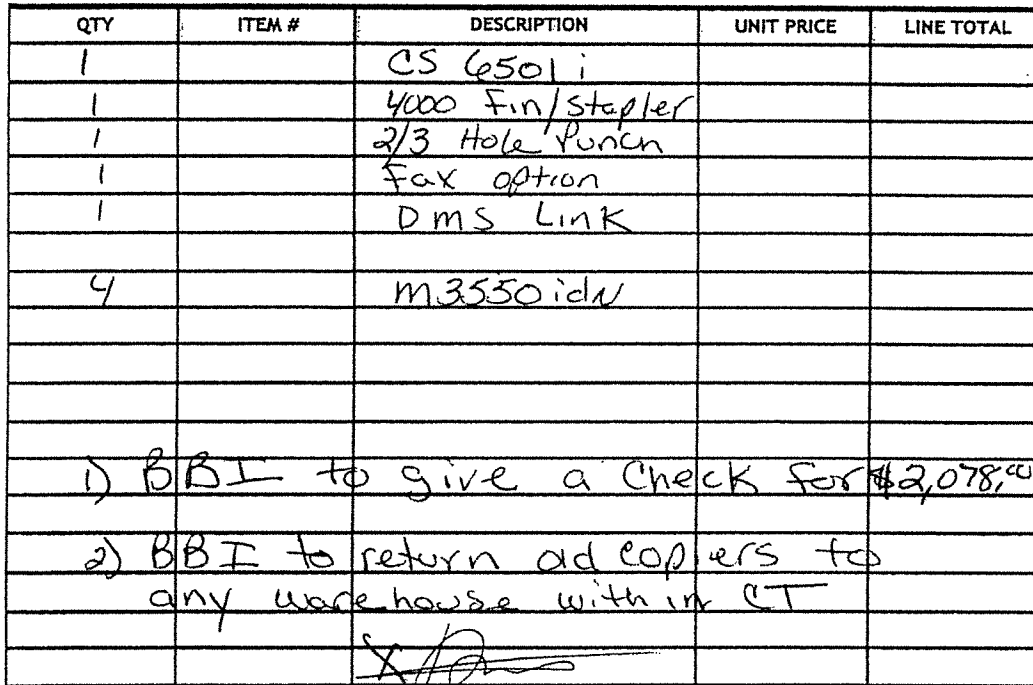 QTY ITEM # DESCRIPTION UNIT PRICE LINE TOTAL
1 CS 6501i
1 4000 Fin/Stapler
1 2/3 Hole Punch
1 Fax option
1 DMS Link
4 M3550idN
1) BBI to give a Check for $2,078.00
2) BBI to return old copiers to
any warehouse within CT
X